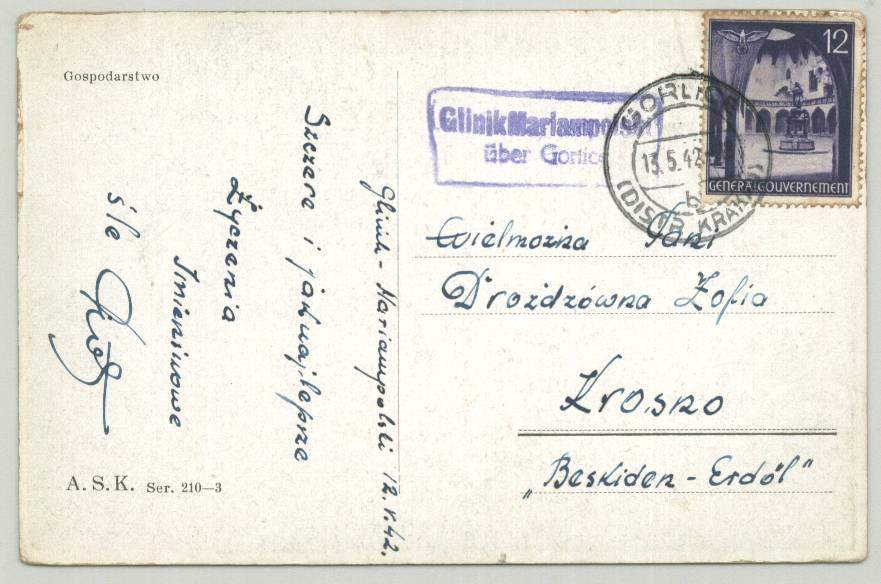 Gospodarstwo
Glinik-Mariampolski 12.V.42.
Szczere i jaknajlepsze
Życzenia
Imieninowe
śle
A. S. K. Ser. 210—3
Glinik Mariampolski
über Gorlice
GORLICE
13.5.42
(DISTR. KRAKAU)
12
GENERALGOUVERNEMENT
Wielmożna Pani
Drożdżówna Zofia
Krosno
„Beskiden - Erdöl"